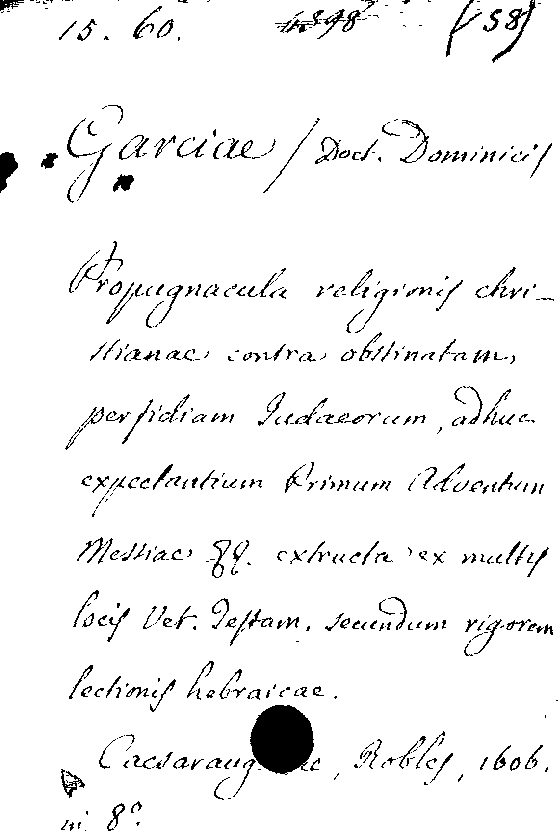 15. 60. 4898 (58)
Garciae / Doct. Dominici /
Propugnacula religionis chri-
stianae contra obstinatam
perfidiam Judaeorum, adhuc
expectantium Primum Adventum
Messiae extructa ex multis
locis Vet. Testam. secundum rigorem
lectionis hebraicae.
Caesaraug ae, Robles, 1606.
in 8°.